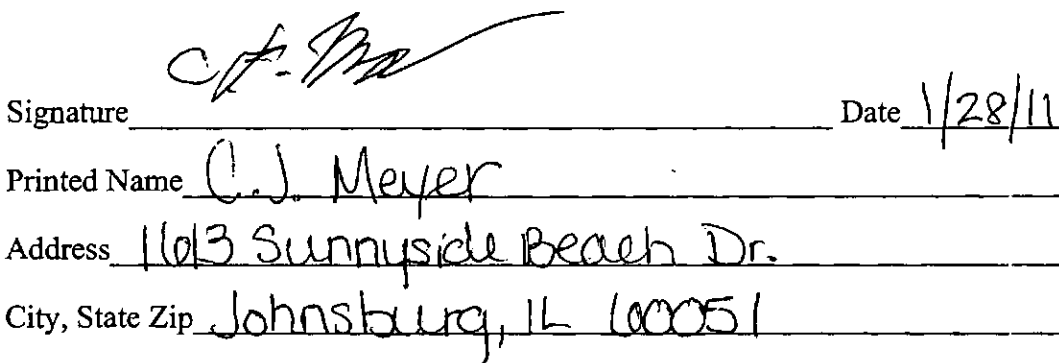 Signature Date 1/28/11
Printed Name C.J. Meyer
Address 1613 Sunnyside Beach Dr.
City, State Zip Johnsburg, IL 60051